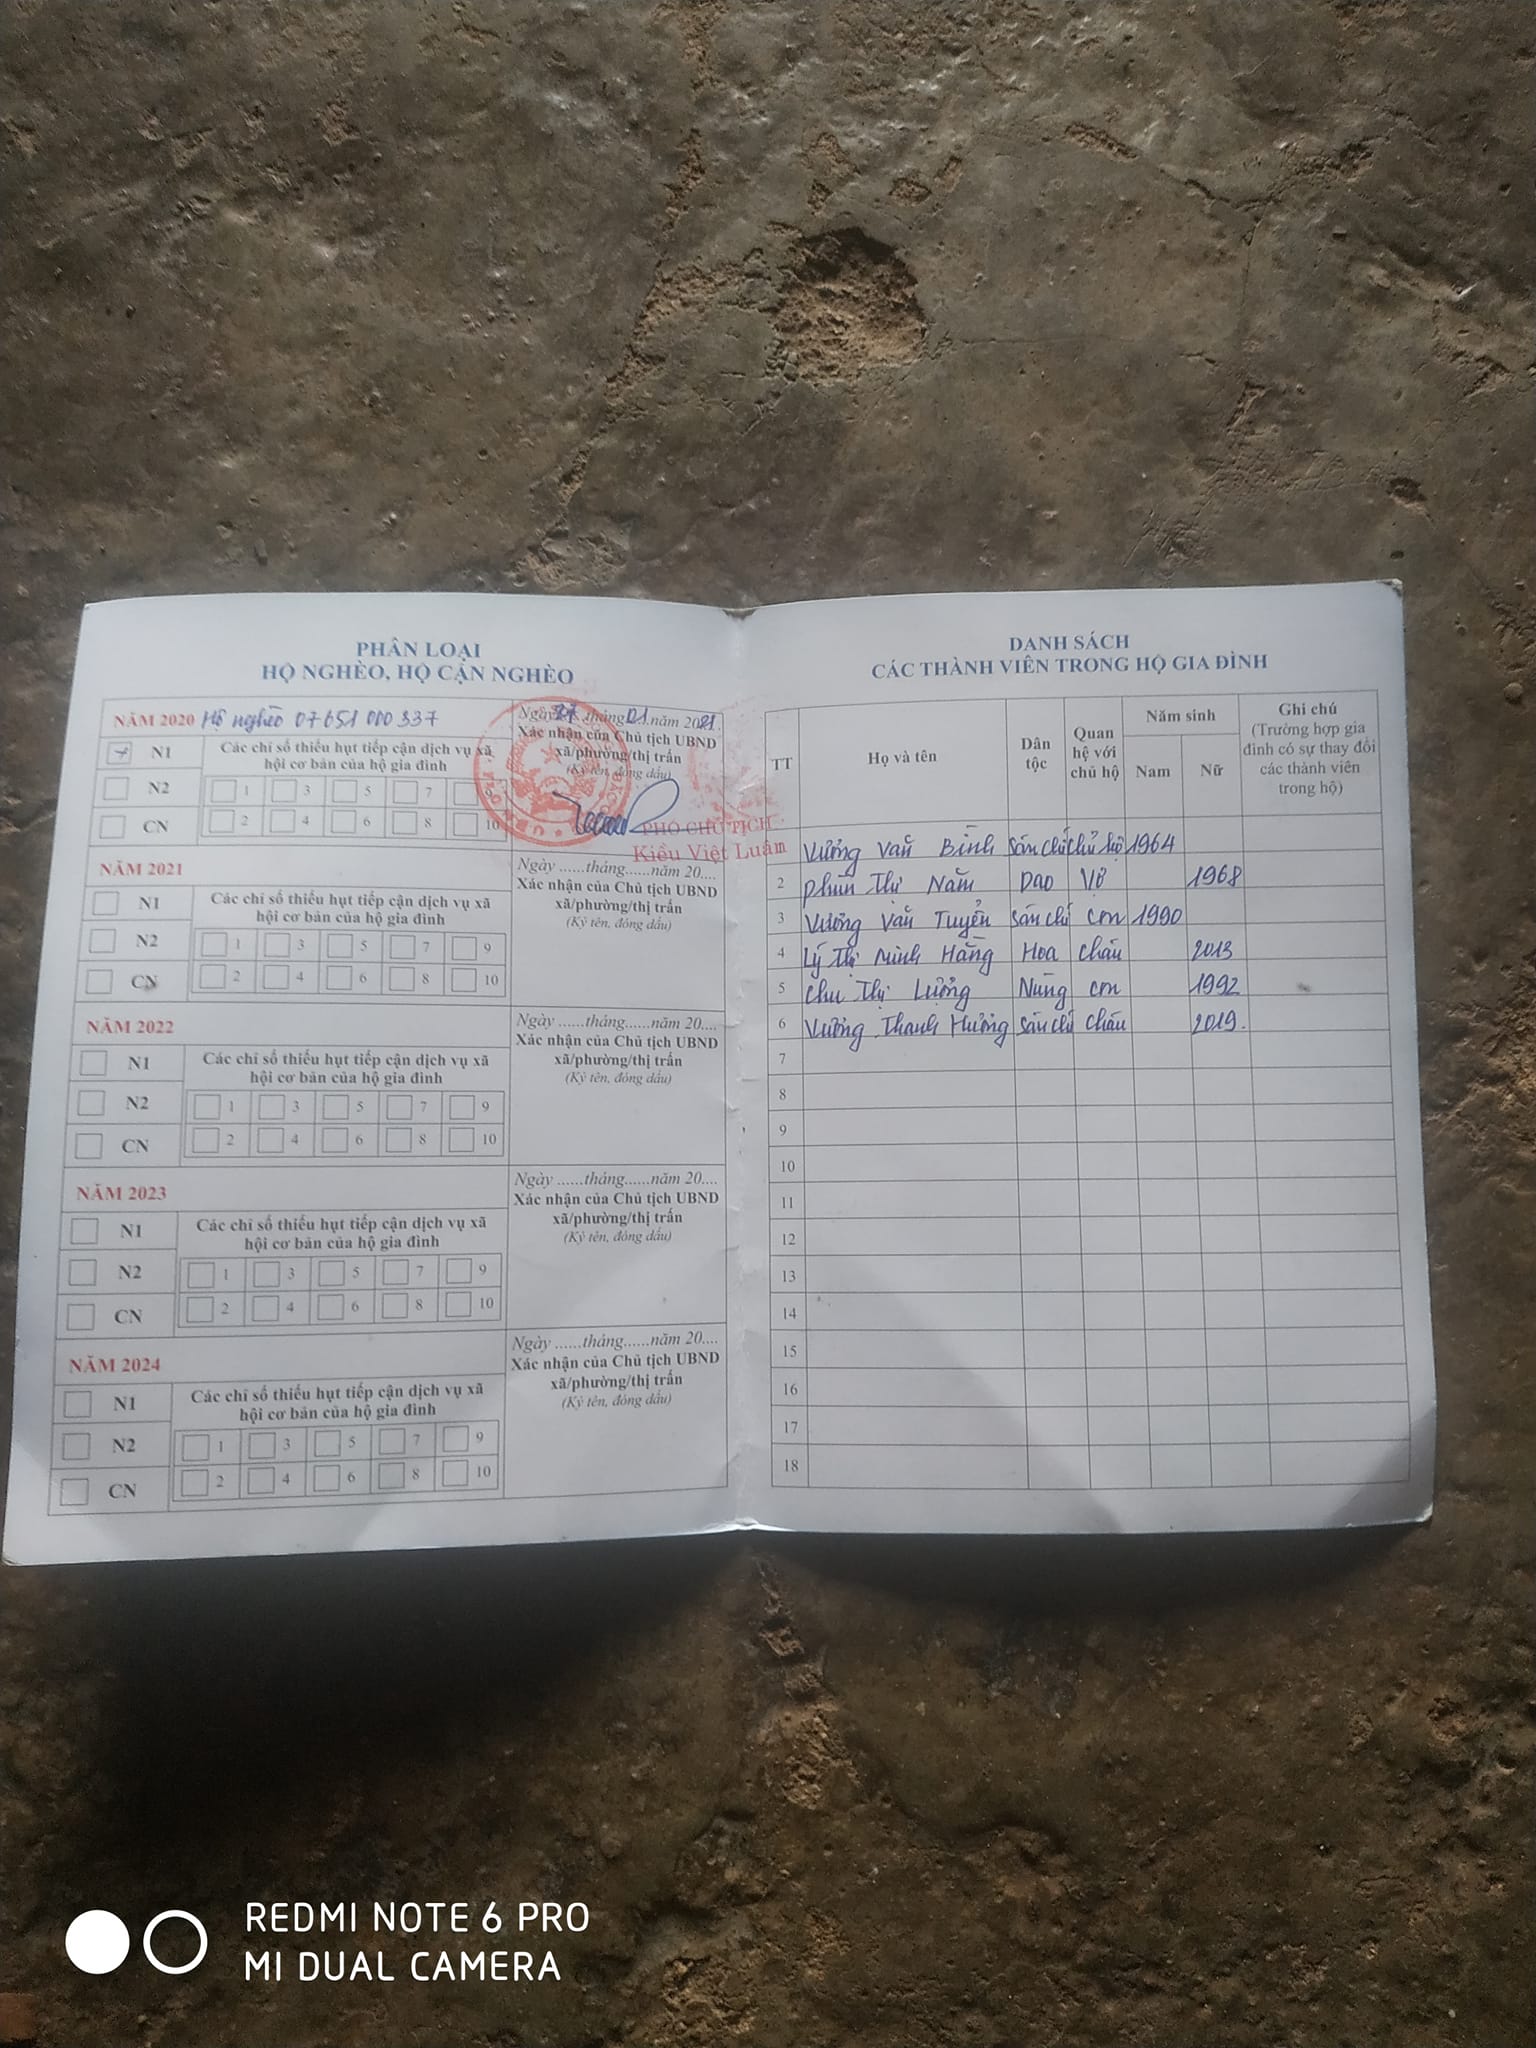 PHÂN LOẠI
HỘ NGHÈO, HỘ CẬN NGHÈO
NĂM 2020 Hộ nghèo 07651 000 337
N1
Các chỉ số thiếu hụt tiếp cận dịch vụ xã
hội cơ bản của hộ gia đình
N2
1 3 5 7 9
CN
2 4 6 8 10
Ngày 27 tháng 01 năm 2021.
Xác nhận của Chủ tịch UBND
xã/phường/thị trấn
(Ký tên, đóng dấu)
PHÓ CHỦ TỊCH
Kiều Việt Luân
NĂM 2021
N1
Các chỉ số thiếu hụt tiếp cận dịch vụ xã
hội cơ bản của hộ gia đình
N2
1 3 5 7 9
CN
2 4 6 8 10
Ngày ......tháng......năm 20....
Xác nhận của Chủ tịch UBND
xã/phường/thị trấn
(Ký tên, đóng dấu)
NĂM 2022
N1
Các chỉ số thiếu hụt tiếp cận dịch vụ xã
hội cơ bản của hộ gia đình
N2
1 3 5 7 9
CN
2 4 6 8 10
Ngày ......tháng......năm 20....
Xác nhận của Chủ tịch UBND
xã/phường/thị trấn
(Ký tên, đóng dấu)
NĂM 2023
N1
Các chỉ số thiếu hụt tiếp cận dịch vụ xã
hội cơ bản của hộ gia đình
N2
1 3 5 7 9
CN
2 4 6 8 10
Ngày ......tháng......năm 20....
Xác nhận của Chủ tịch UBND
xã/phường/thị trấn
(Ký tên, đóng dấu)
NĂM 2024
N1
Các chỉ số thiếu hụt tiếp cận dịch vụ xã
hội cơ bản của hộ gia đình
N2
1 3 5 7 9
CN
2 4 6 8 10
Ngày ......tháng......năm 20....
Xác nhận của Chủ tịch UBND
xã/phường/thị trấn
(Ký tên, đóng dấu)
DANH SÁCH
CÁC THÀNH VIÊN TRONG HỘ GIA ĐÌNH
TT
Họ và tên
Dân
tộc
Quan
hệ với
chủ hộ
Năm sinh
Nam Nữ
Ghi chú
(Trường hợp gia
đình có sự thay đổi
các thành viên
trong hộ)
Vương Văn Bình Sán chí chủ hộ 1964
2 Phùn Thị Nằm Dao Vợ 1968
3 Vương Văn Tuyển Sán chí con 1990
4 Lý Thị Minh Hằng Hoa cháu 2013
5 Chu Thị Lưởng Nùng con 1992
6 Vương Thanh Hương Sán chí cháu 2019.
7
8
9
10
11
12
13
14
15
16
17
18
REDMI NOTE 6 PRO
MI DUAL CAMERA